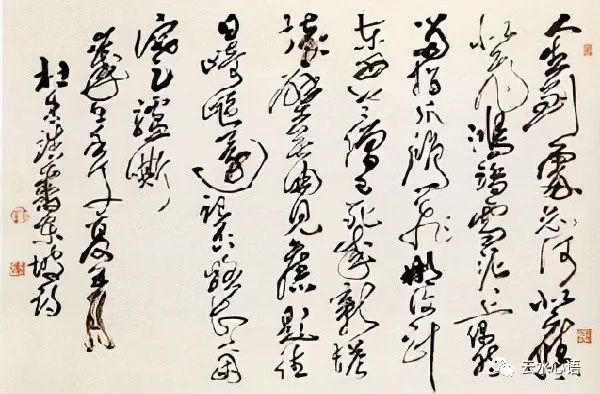 人生到處知何似應
似飛鴻踏雪泥上偶然
留指爪鴻飛那復計
東西老僧已死成新塔
壞壁無由見舊題往
日崎嶇還記否路長人困
蹇驢嘶
東坡詩
云水心语